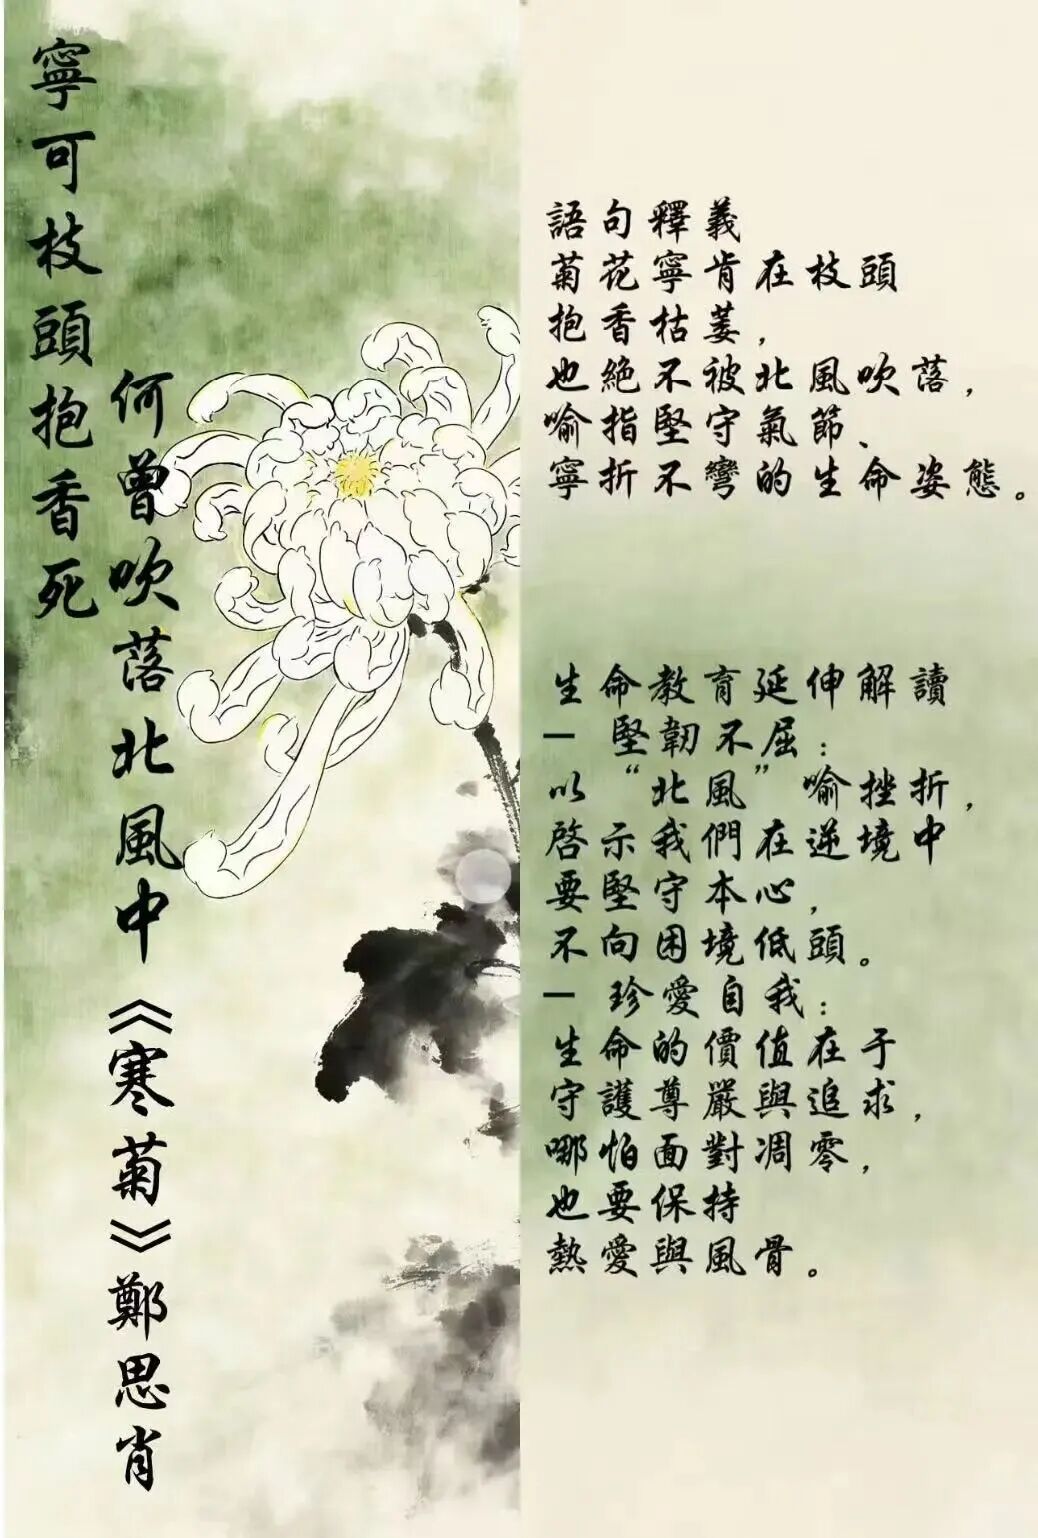 寧可枝頭抱香死
何曾吹落北風中《寒菊》鄭思肖
語句釋義
菊花寧肯在枝頭
抱香枯萎，
也絕不被北風吹落，
喻指堅守氣節、
寧折不彎的生命姿態。
生命教育延伸解讀
一 堅韌不屈：
以“北風”喻挫折，
啓示我們在逆境中
要堅守本心，
不向困境低頭。
一 珍愛自我：
生命的價值在于
守護尊嚴與追求，
哪怕面對凋零，
也要保持
熱愛與風骨。